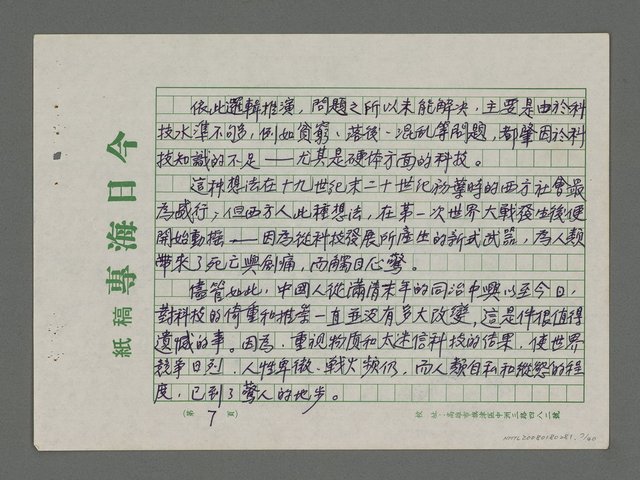 今日海專
稿紙
依此邏輯推演，問題之所以未能解決，主要是由於科
技水準不夠，例如貧窮、落後、混亂等問題，都肇因於科
技知識的不足——尤其是硬体方面的科技。
這種想法在十九世紀末二十世紀初葉時的西方社會最
為盛行，但西方人此種想法，在第一次世界大戰發生後便
開始動搖——因為從科技發展所產生的新式武器，為人類
帶來了死亡與創痛，而觸目心驚。
儘管如此，中國人從滿清末年的同治中興以至今日，
對科技的倚重和推崇一直並没有多大改變，這是件很值得
遺憾的事。因為，重視物质和太迷信科技的结果，使世界
競爭日烈，人性卑微、戰火頻仍，而人類自私和縱慾的程
度，已到了驚人的地步。
（第 7 頁）
校址：高雄市旗津區中洲三路四八二號
NMTL20080180281. 7/40